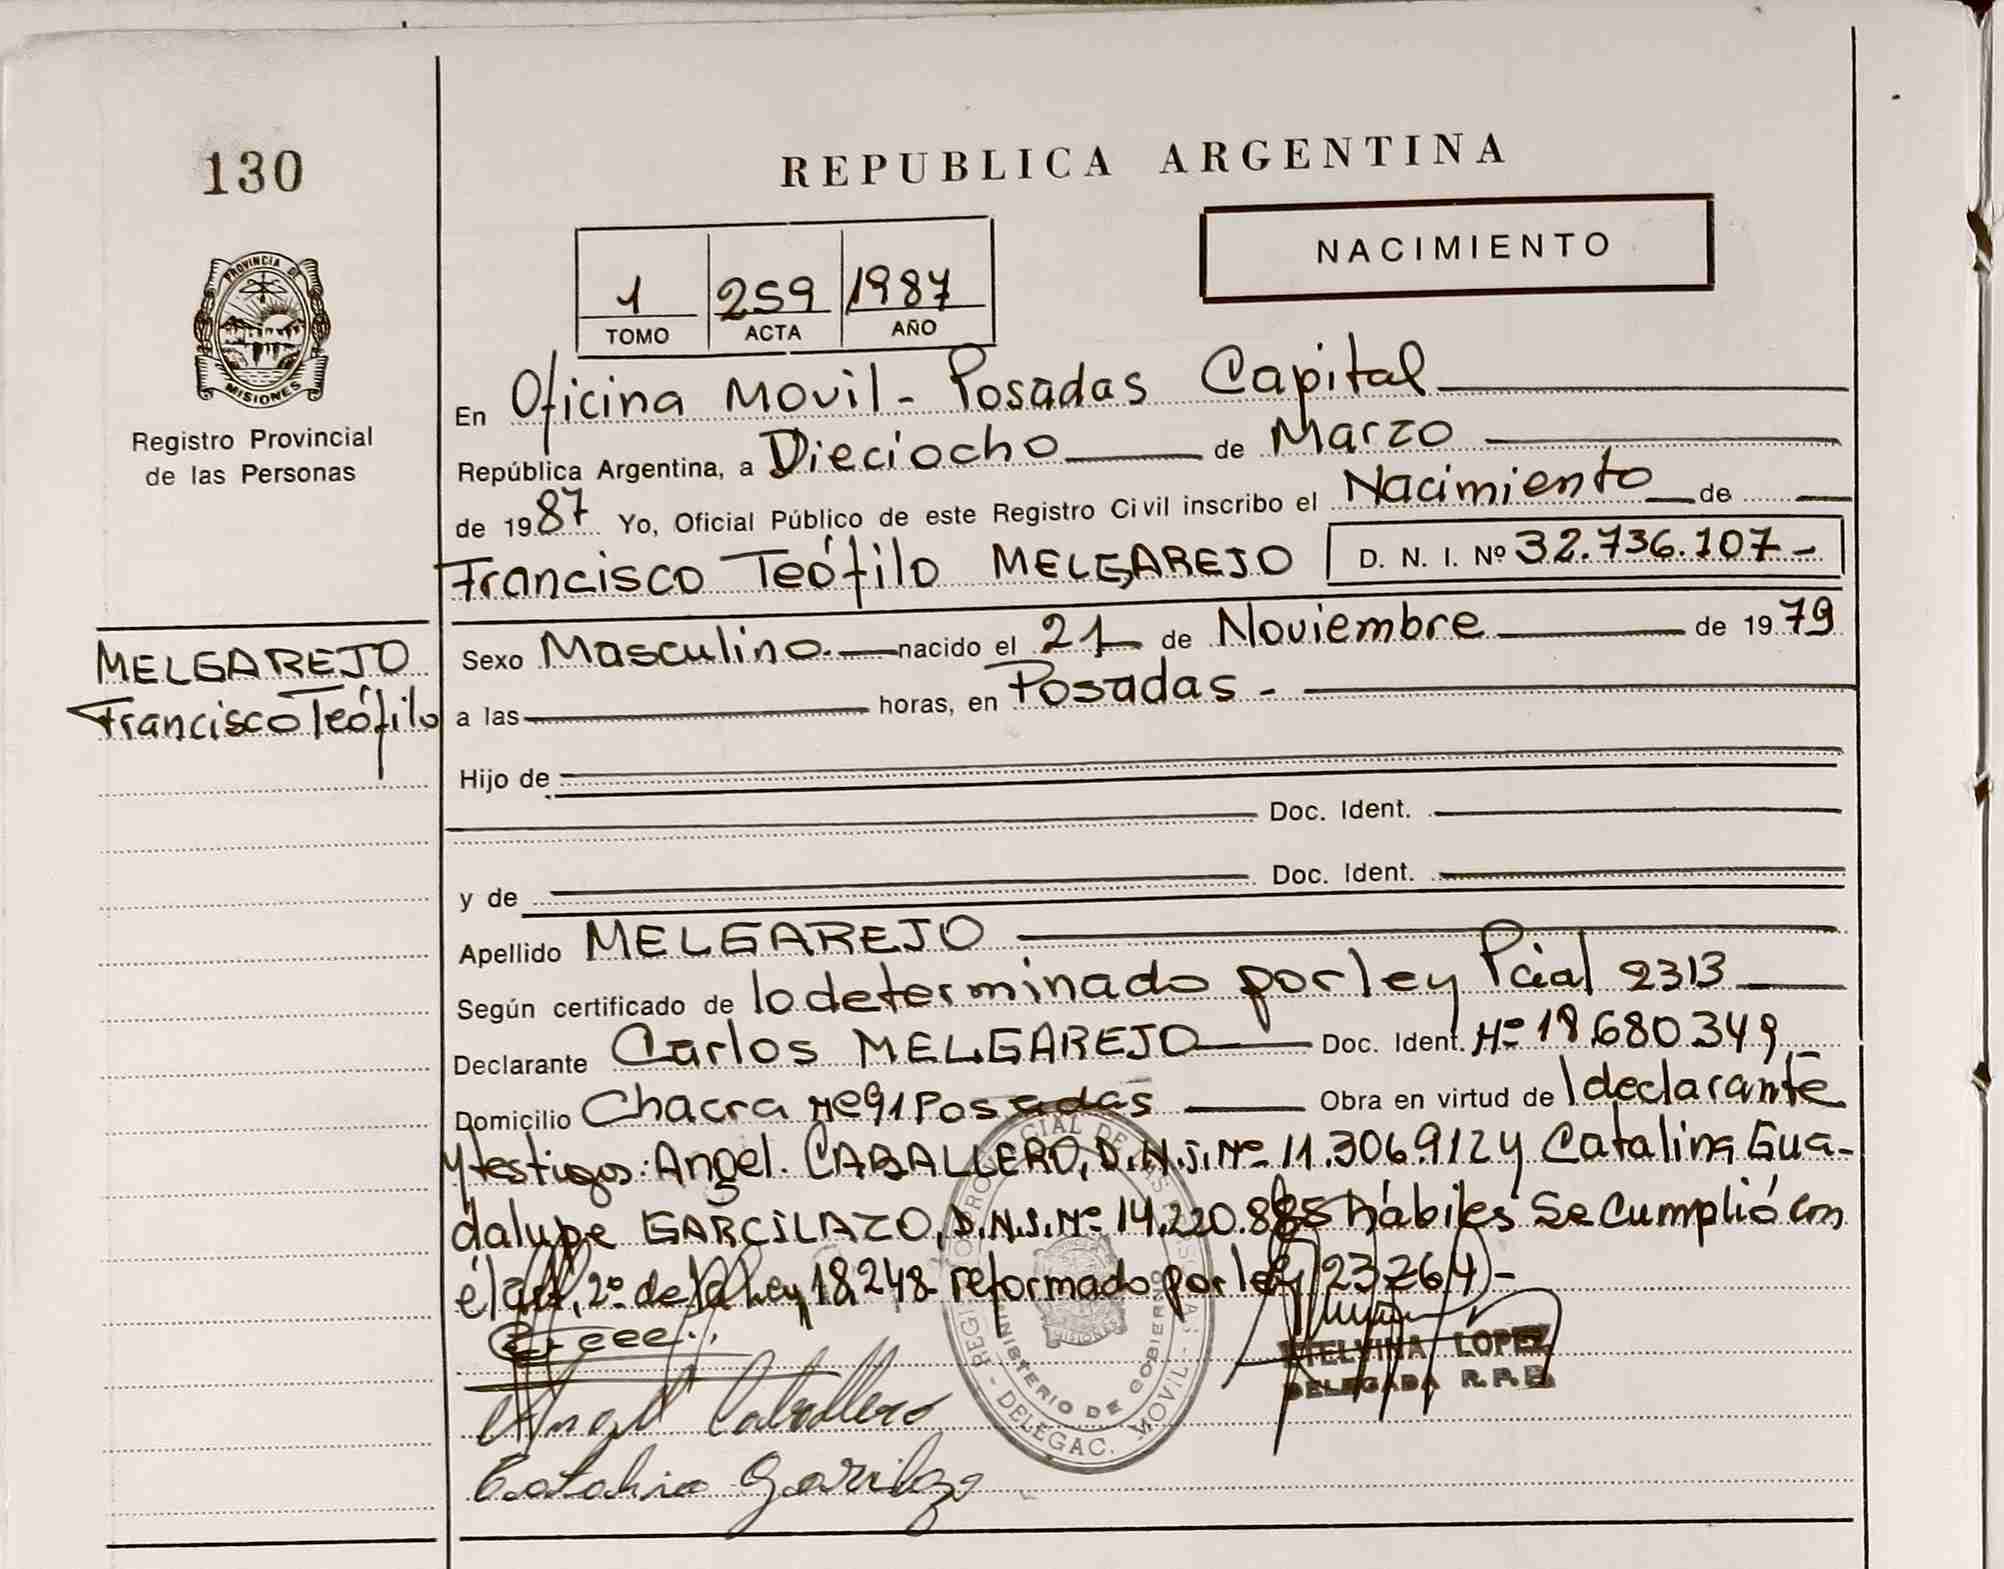 130
REPUBLICA ARGENTINA
NACIMIENTO
1 259 1987
TOMO ACTA AÑO
PROVINCIA DE
MISIONES
Registro Provincial
de las Personas
En Oficina Movil - Posadas Capital
República Argentina, a Dieciocho de Marzo
de 1987 Yo, Oficial Público de este Registro Civil inscribo el Nacimiento de
Francisco Teófilo MELGAREJO D. N. I. Nº 32.736.107-
MELGAREJO
Francisco Teófilo
Sexo Masculino. nacido el 21 de Noviembre de 1979
a las horas, en Posadas -
Hijo de
Doc. Ident.
y de Doc. Ident.
Apellido MELGAREJO
Según certificado de lo determinado por ley Pcial 2313
Declarante Carlos MELGAREJO Doc. Ident. Nº 18.680.349.-
Domicilio Chacra Nº 91 Posadas Obra en virtud de l declarante
y testigos: Angel. CABALLERO, D.N.I. Nº 11.306.912 y Catalina Gua-
dalupe GARCILAZO, D.N.I. Nº 14.220.885 hábiles Se Cumplió con
el art. 2º de la Ley 18.248 reformado por ley 23264)-
Angel Caballero
Catalina Garcilazo
MINISTERIO DE GOBIERNO
MISIONES
DELEGAC. MOVIL
LOPEZ
DELEGADA R.P.P.